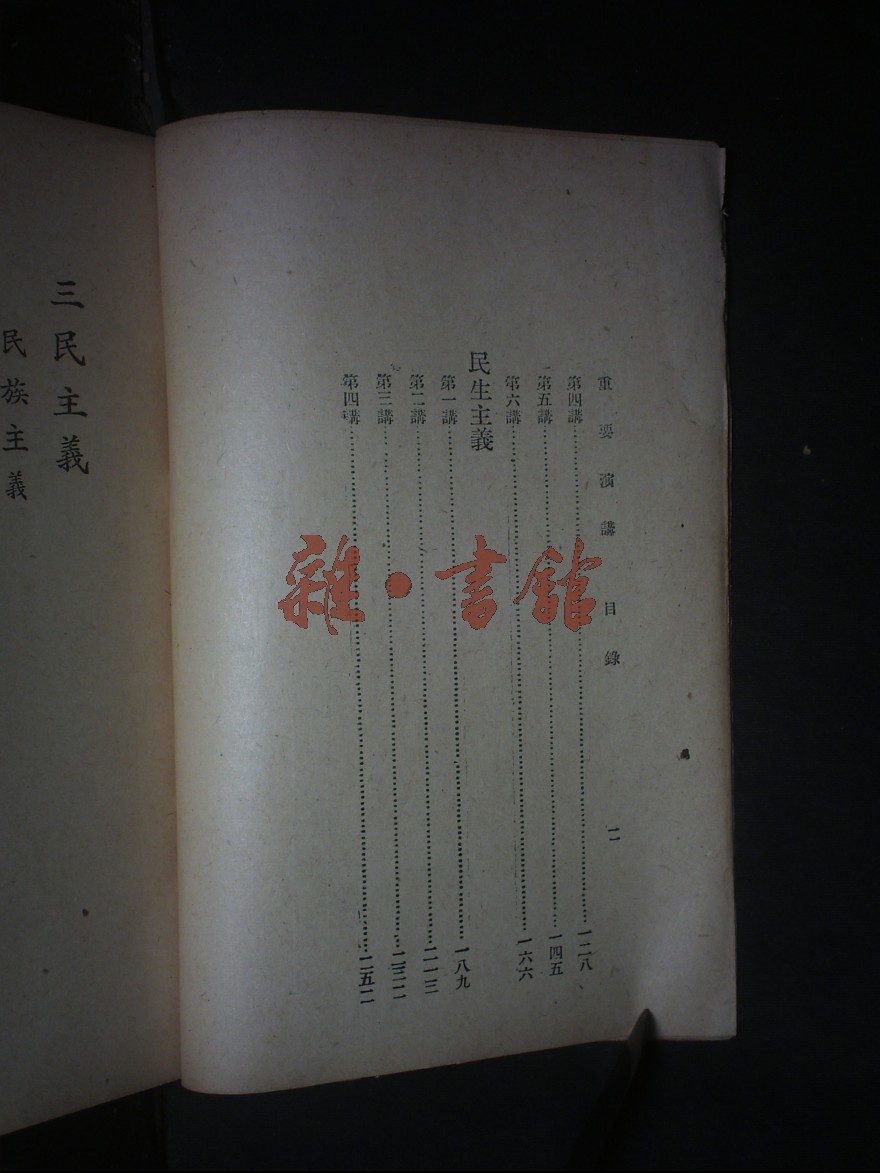 重要演講目錄
二
第四講……一二八
第五講……一四五
第六講……一六六
民生主義
第一講……一八九
第二講……二一三
第三講……二三二
第四講……二五二
三民主義
民族主義
雜·書館